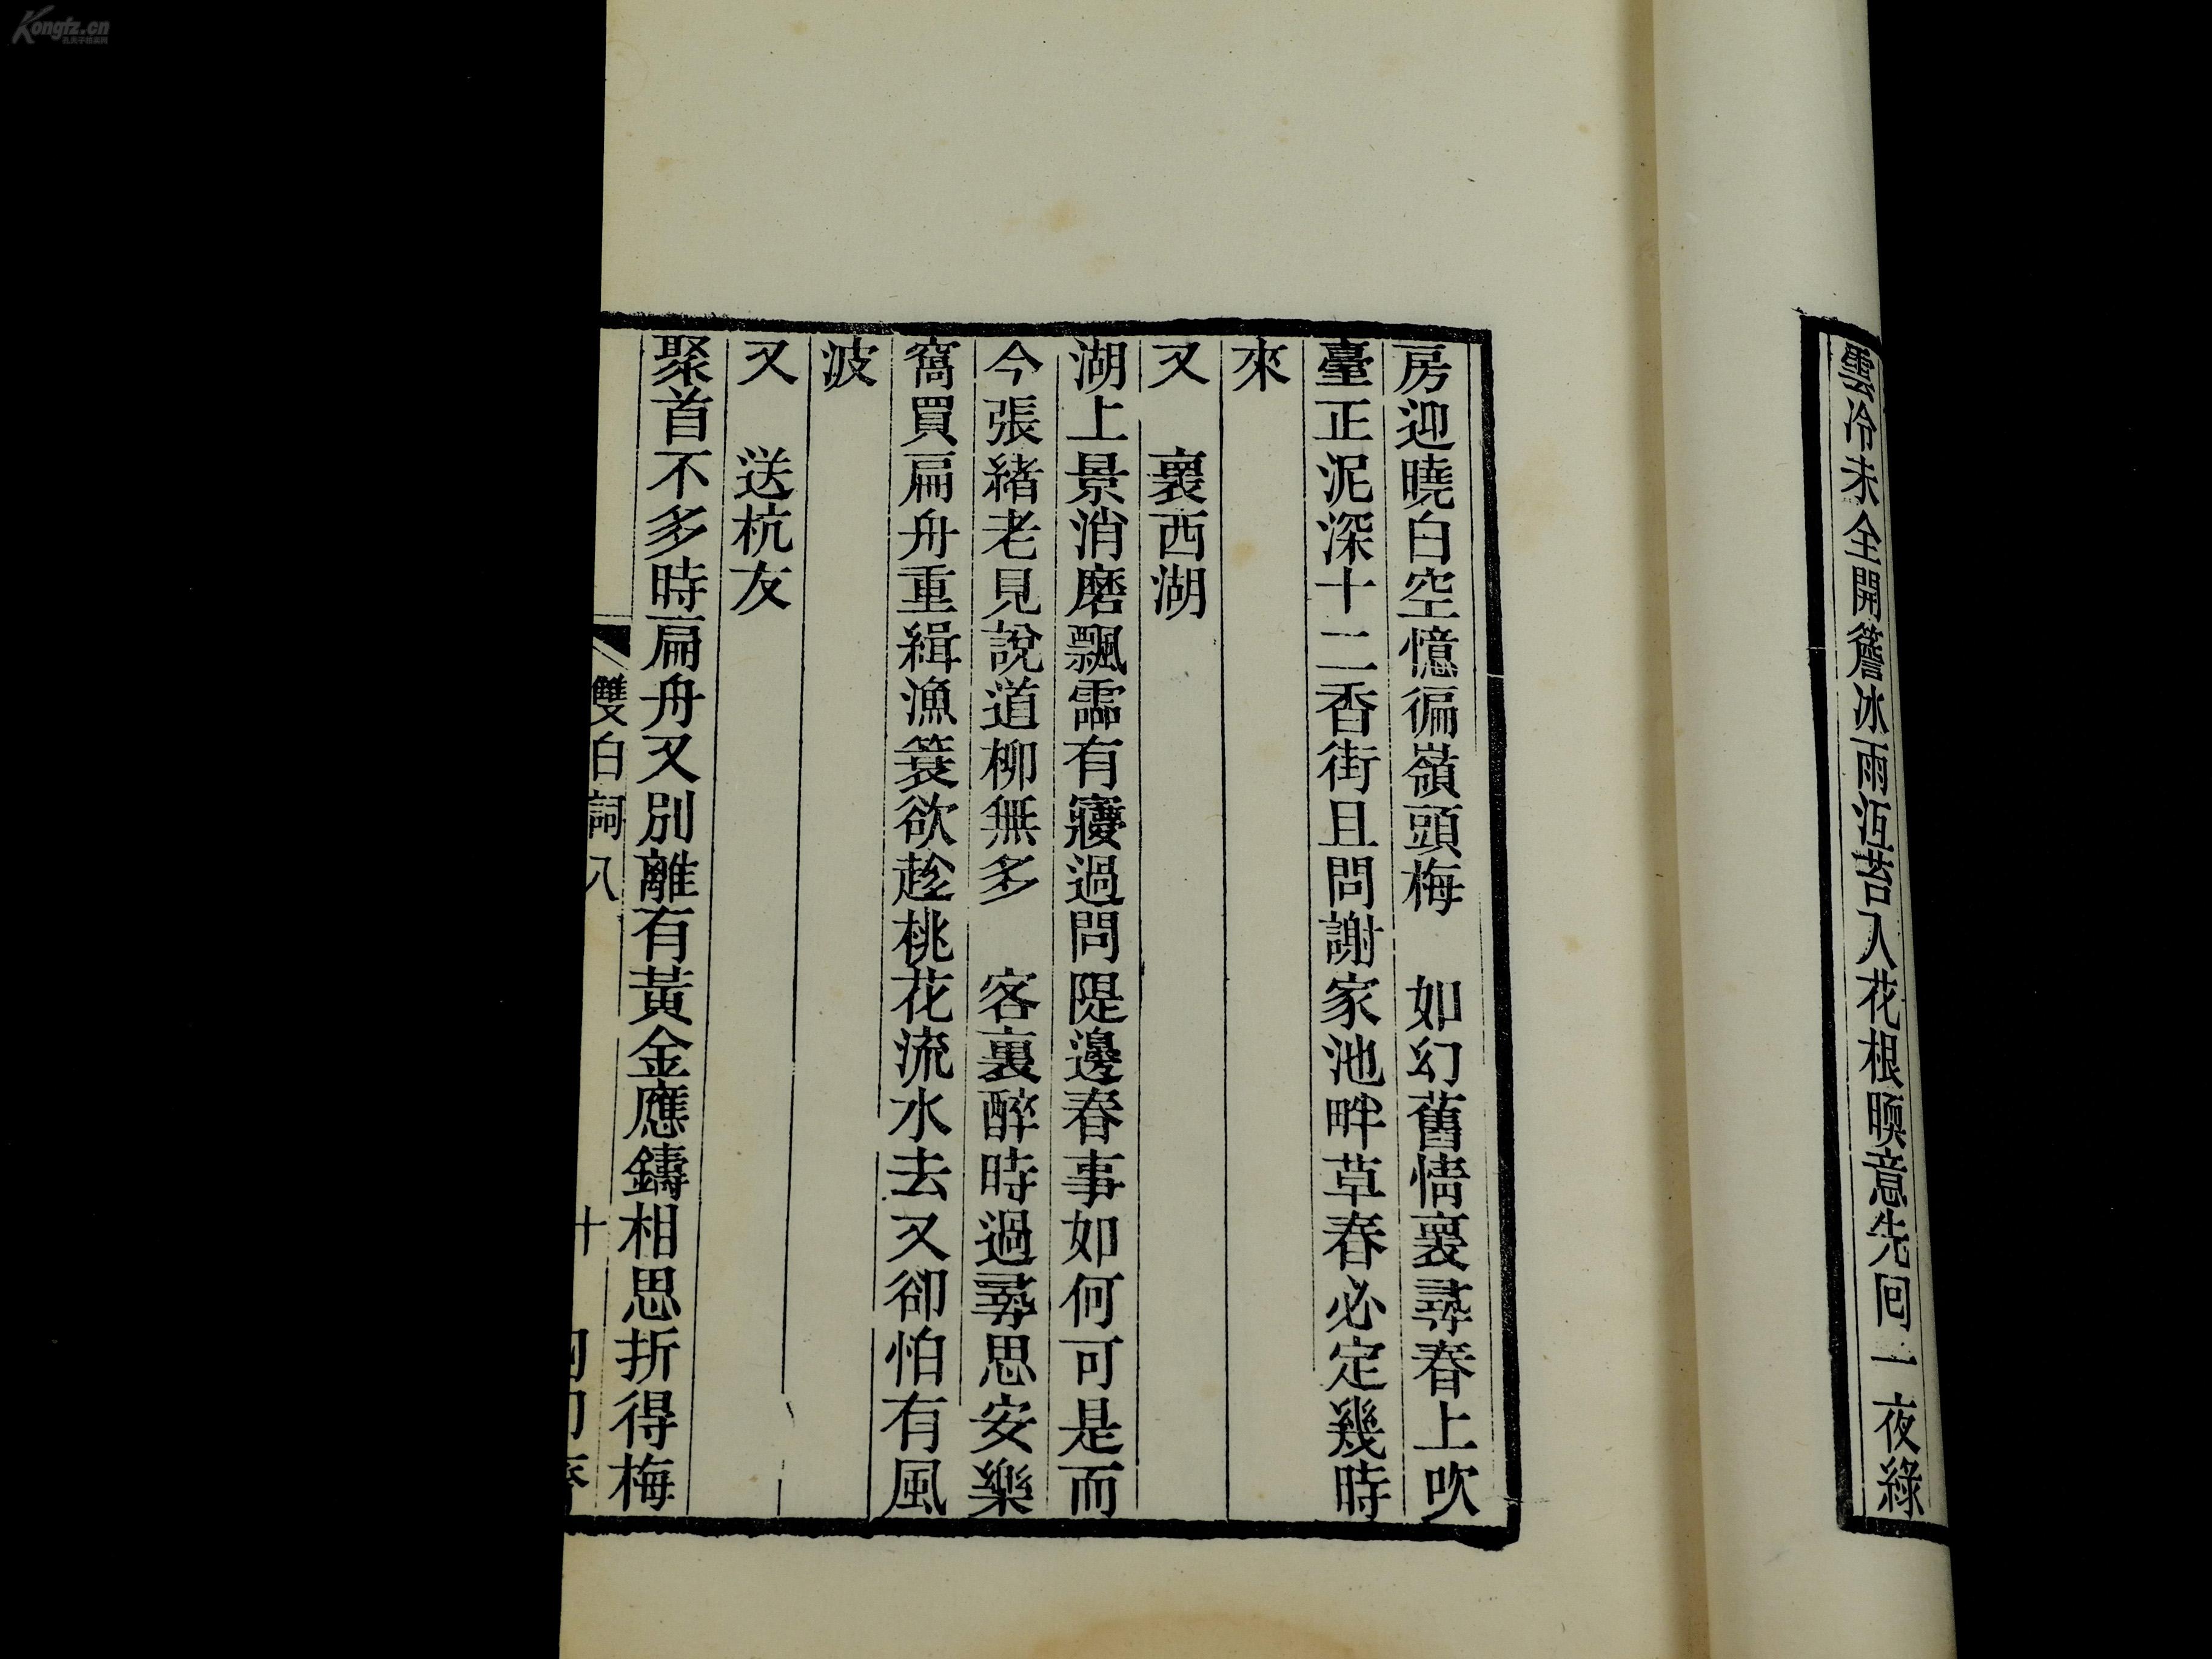 雲冷未全開簷冰雨沍苔入花根暖意先回一夜綠
房迎曉白空憶徧嶺頭梅　如幻舊情裏尋春上吹
臺正泥深十二香街且問謝家池畔草春必定幾時
來
又　褱西湖
湖上景消磨飄零有癭過問隄邊春事如何可是而
今張緒老見說道柳無多　客裏醉時過尋思安樂
窩買扁舟重緝漁蓑欲趁桃花流水去又卻怕有風
波
又　送杭友
聚首不多時扁舟又別離有黃金應鑄相思折得梅
雙白詞八
十
Kongfz.cn